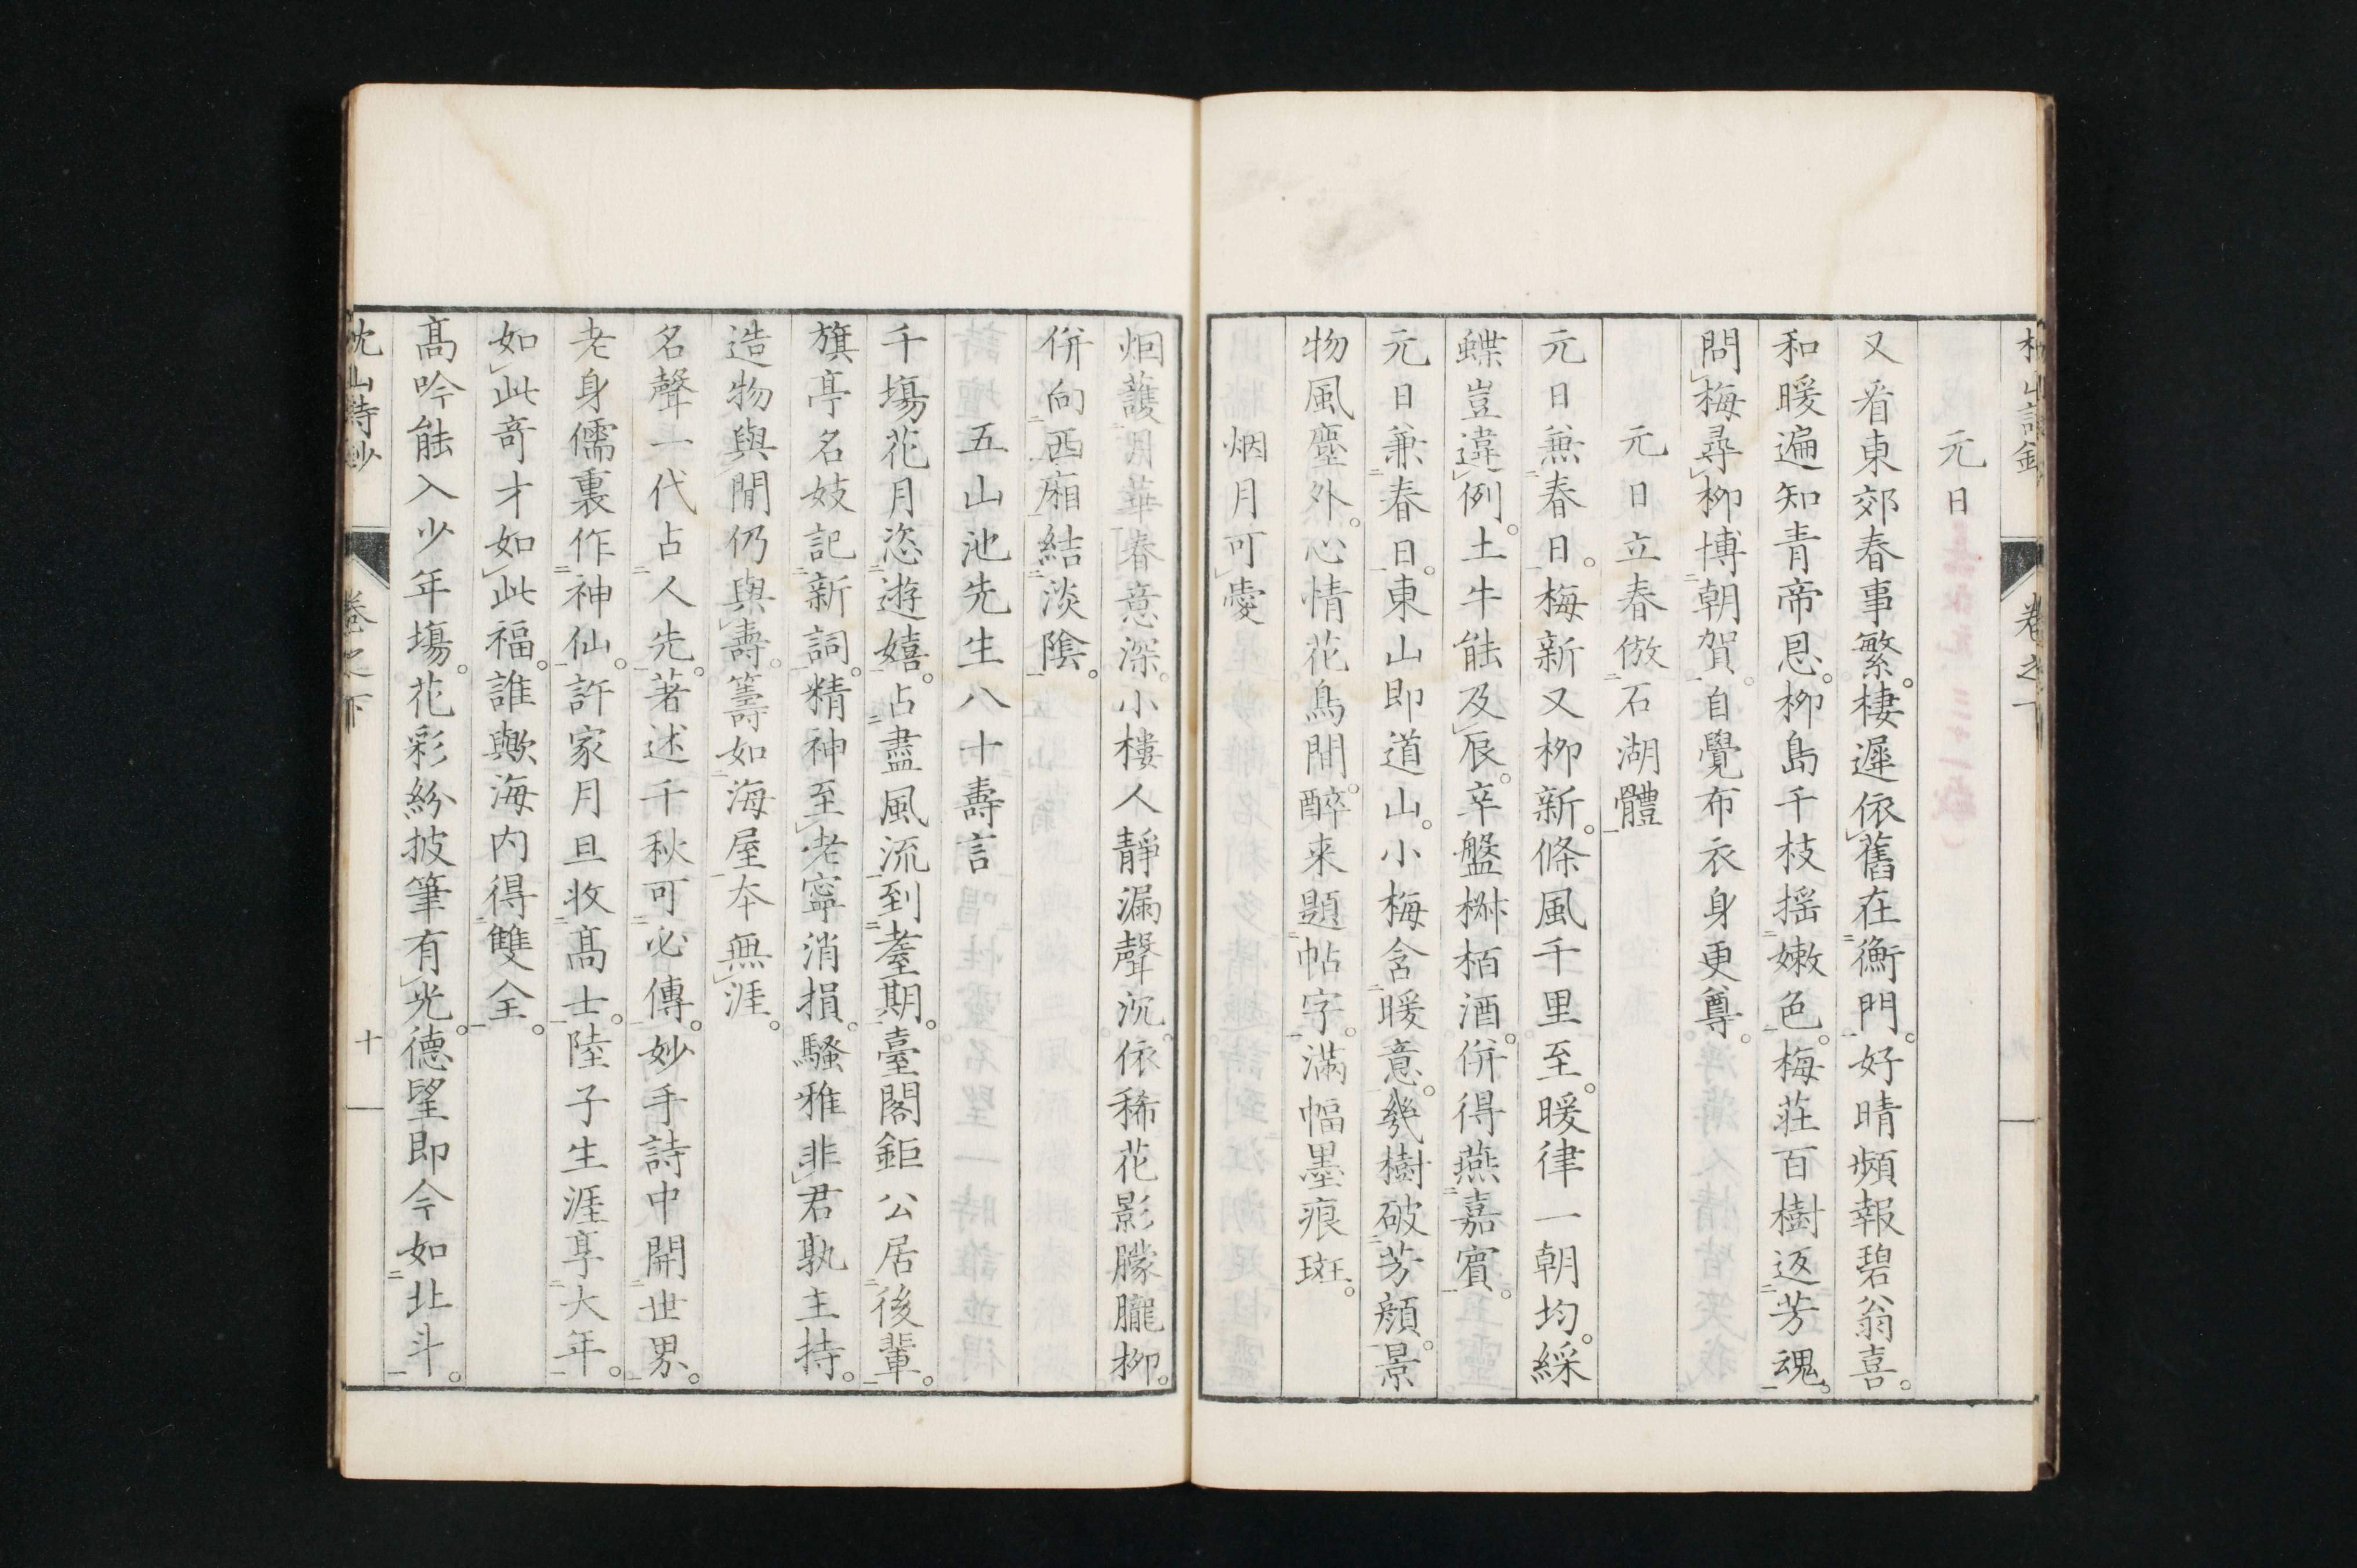 元日
又看東郊春事繁棲遲依舊在衡門好晴頻報碧翁喜
和暖遍知青帝恩柳島千枝揺嫩色梅莊百樹返芳魂
問梅尋柳博朝賀自覺布衣身更尊
元日立春倣石湖體
元日兼春日梅新又柳新條風千里至暖律一朝均綵
蝶豈違例土牛能及辰辛盤椒栢酒併得燕嘉賓
元日兼春日東山即道山小梅含暖意幾樹破芳顔景
物風塵外心情花鳥間醉来題帖字滿幅墨痕斑
烟月可愛
烟護月華春意深小樓人靜漏聲沉依稀花影朦朧柳
併向西廂結淡陰
五山池先生八十壽言
千塲花月恣遊嬉占盡風流到耋期臺閣鉅公居後輩
旗亭名妓記新詞精神至老寧消損騷雅非君孰主持
造物與閒仍與壽籌如海屋本無涯
名聲一代占人先著述千秋可必傳妙手詩中開世界
老身儒裏作神仙許家月旦收髙士陸子生涯享大年
如此奇才如此福誰歟海内得雙全
髙吟能入少年塲花彩紛披筆有光德望即今如北斗
枕山詩鈔
卷之下
十